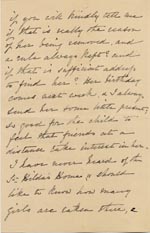 if you will kindly tell me
if that is really the reason
of her being removed, and
a rule always kept and
if that is sufficient address
to find her? Her birthday
comes next week & I always
send her some little present,
so good for the child to
feel that friends at a
distance take interest in her.
I have never heard of the
St. Hilda's Home & should
like to know how many
girls are taken there, &